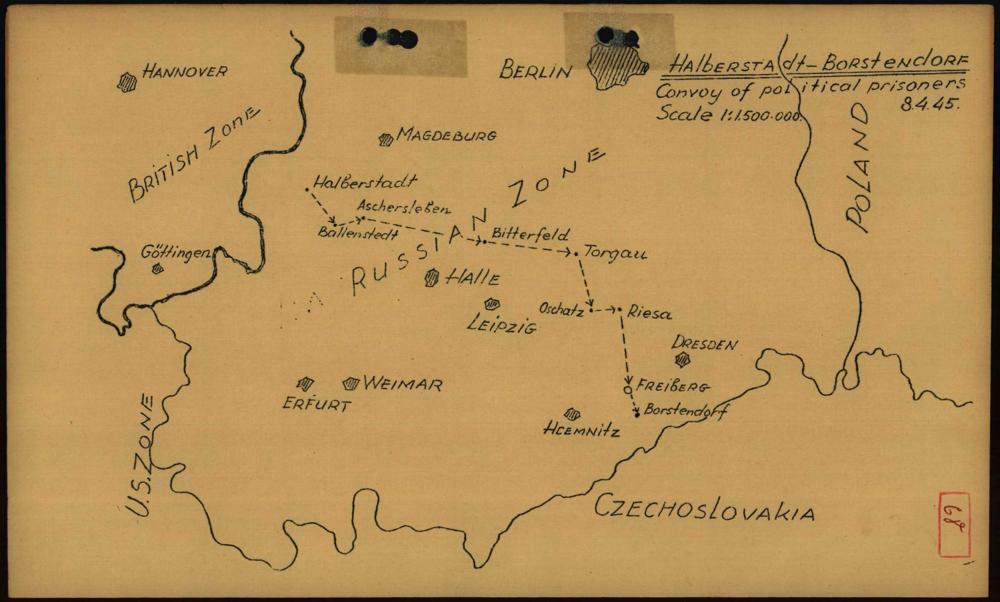 HALBERSTADT-BORSTENDORF
Convoy of political prisoners
8.4.45.
Scale 1:1.500.000.
HANNOVER
BERLIN
BRITISH ZONE
MAGDEBURG
POLAND
Halberstadt
RUSSIAN ZONE
Aschersleben
Ballenstedt
Bitterfeld
Torgau
Göttingen
HALLE
LEIPZIG
Oschatz
Riesa
DRESDEN
ERFURT
WEIMAR
FREIBERG
Borstendorf
HCEMNITZ
U.S. ZONE
CZECHOSLOVAKIA
68